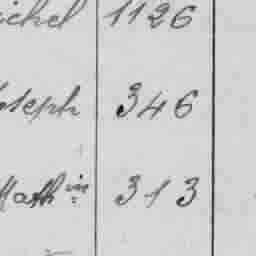 ichel 1126
oseph 346
Math in 313